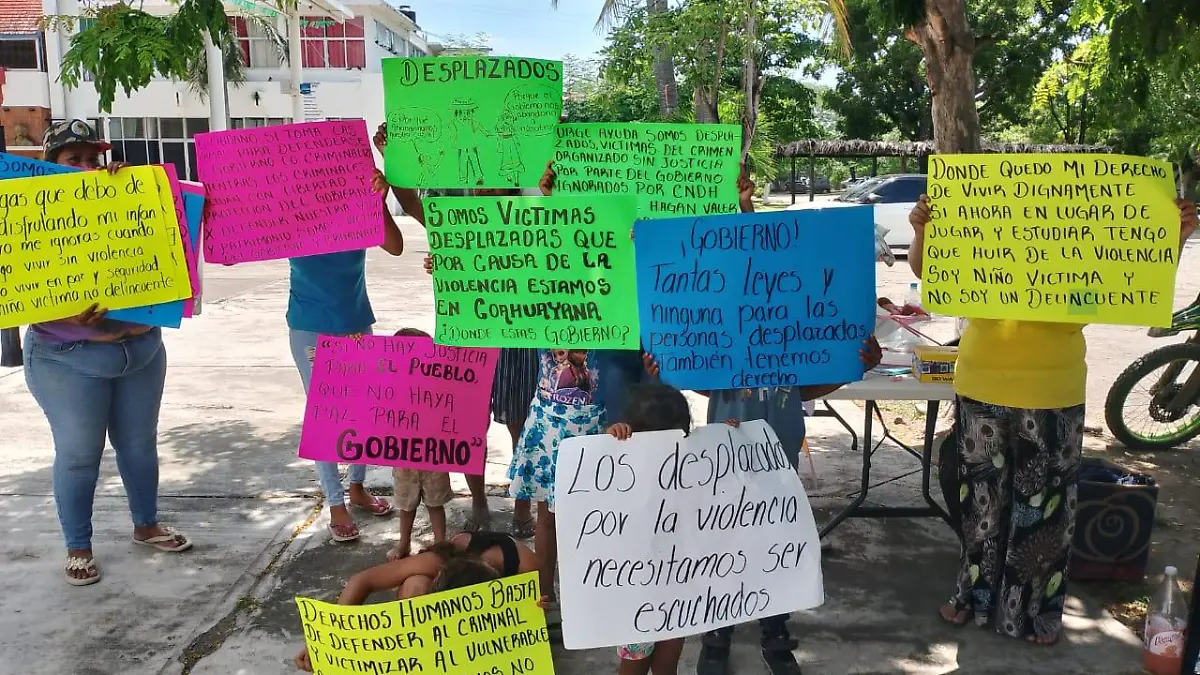 SOMOS
gas que debo de
disfrutando mi infan
ro me ignoras cuando
go vivir sin violencia
vivir en paz y seguridad
niña victima no delincuente
SI TOMA LAS
PARA DEFENDERSE
GOBIERNO LOS CRIMINALES
LOS CRIMINALES
CON LIBERTAD Y
PROTECCION DEL GOBIERNO
X DEFENDER NUESTRA VIDA
Y PATRIMONIO SOMOS
DESPLAZADOS
Porque el
Gobierno nos
abandono
¿Porqué
URGE AYUDA SOMOS DESPLA
ZADOS, VICTIMAS DEL CRIMEN
ORGANIZADO SIN JUSTICIA
POR PARTE DEL GOBIERNO
IGNORADOS POR CNDH
HAGAN VALER
SOMOS VICTIMAS
DESPLAZADAS QUE
POR CAUSA DE LA
VIOLENCIA ESTAMOS
EN COAHUAYANA
¿DONDE ESTAS GOBIERNO?
¡GOBIERNO!
Tantas leyes y
ninguna para las
personas desplazadas
También tenemos
derecho
DONDE QUEDO MI DERECHO
DE VIVIR DIGNAMENTE
SI AHORA EN LUGAR DE
JUGAR Y ESTUDIAR TENGO
QUE HUIR DE LA VIOLENCIA
SOY NIÑO VICTIMA Y
NO SOY UN DELINCUENTE
"SI NO HAY JUSTICIA
PARA EL PUEBLO,
QUE NO HAYA
PAZ PARA EL
GOBIERNO"
FROZEN
Los desplazados
por la violencia
necesitamos ser
escuchados
DERECHOS HUMANOS BASTA
DE DEFENDER AL CRIMINAL
Y VICTIMIZAR AL VULNERABLE
NO